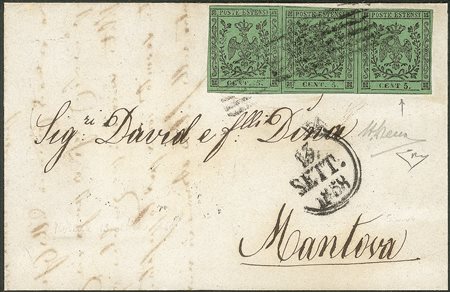 POSTE ESTENSI POSTE ESTENSI POSTE ESTENSI
CENT. 5. CENT. CENT 5.
Sig.ri David e f.lli Dina
13.
SETT.
1858
Mantova